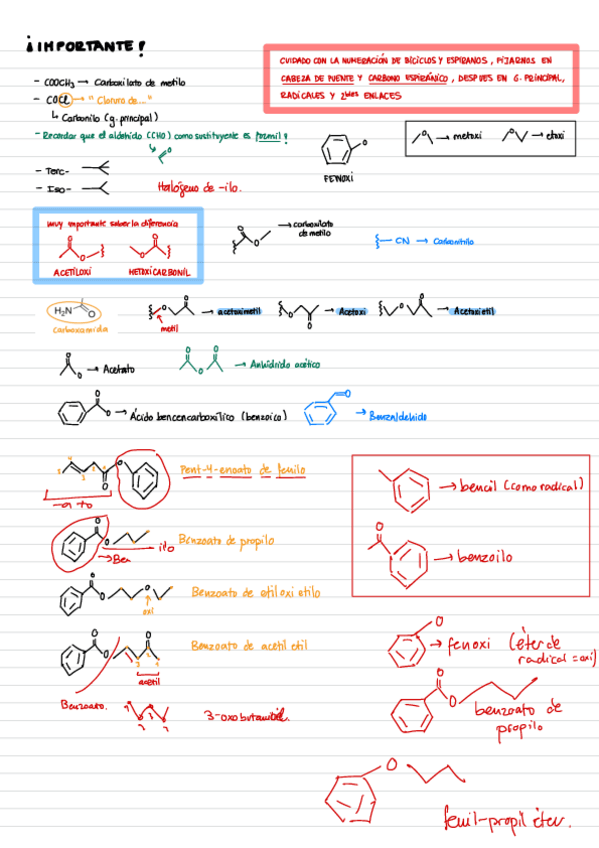 ¡IMPORTANTE!
CUIDADO CON LA NUMERACIÓN DE BICICLOS Y ESPIRANOS, FIJARNOS EN
CABEZA DE PUENTE Y CARBONO ESPIRÁNICO, DESPUES EN G. PRINCIPAL,
RADICALES Y 2bles ENLACES
- COOCH3 → Carboxilato de metilo
- COCl → "Cloruro de..."
↳ Carbonilo (g. principal)
- Recordar que el aldehído (CHO) como sustituyente es formil!
FENOXI
→ metoxi
→ etoxi
- Terc-
- Iso-
Halógeno de -ilo.
muy importante saber la diferencia
ACETILOXI
METOXICARBONIL
→ carboxilato
de metilo
CN → Carbonitrilo
H2N
O
carboxamida
metil
→ acetoximetil
→ Acetoxi
→ Acetoxietil
→ Acetato
→ Anhídrido acético
→ Ácido bencencarboxílico (benzoico)
→ Benzaldehido
Pent-4-enoato de fenilo
-a to
→ bencil (como radical)
Benzoato de propilo
ilo
→ Ben
→ benzoilo
Benzoato de etiloxi etilo
oxi
Benzoato de acetil etil
acetil
→ fenoxi (éter de
radical = oxi)
Benzoato.
3-oxobutanitil.
benzoato de
propilo
fenil-propil éter.